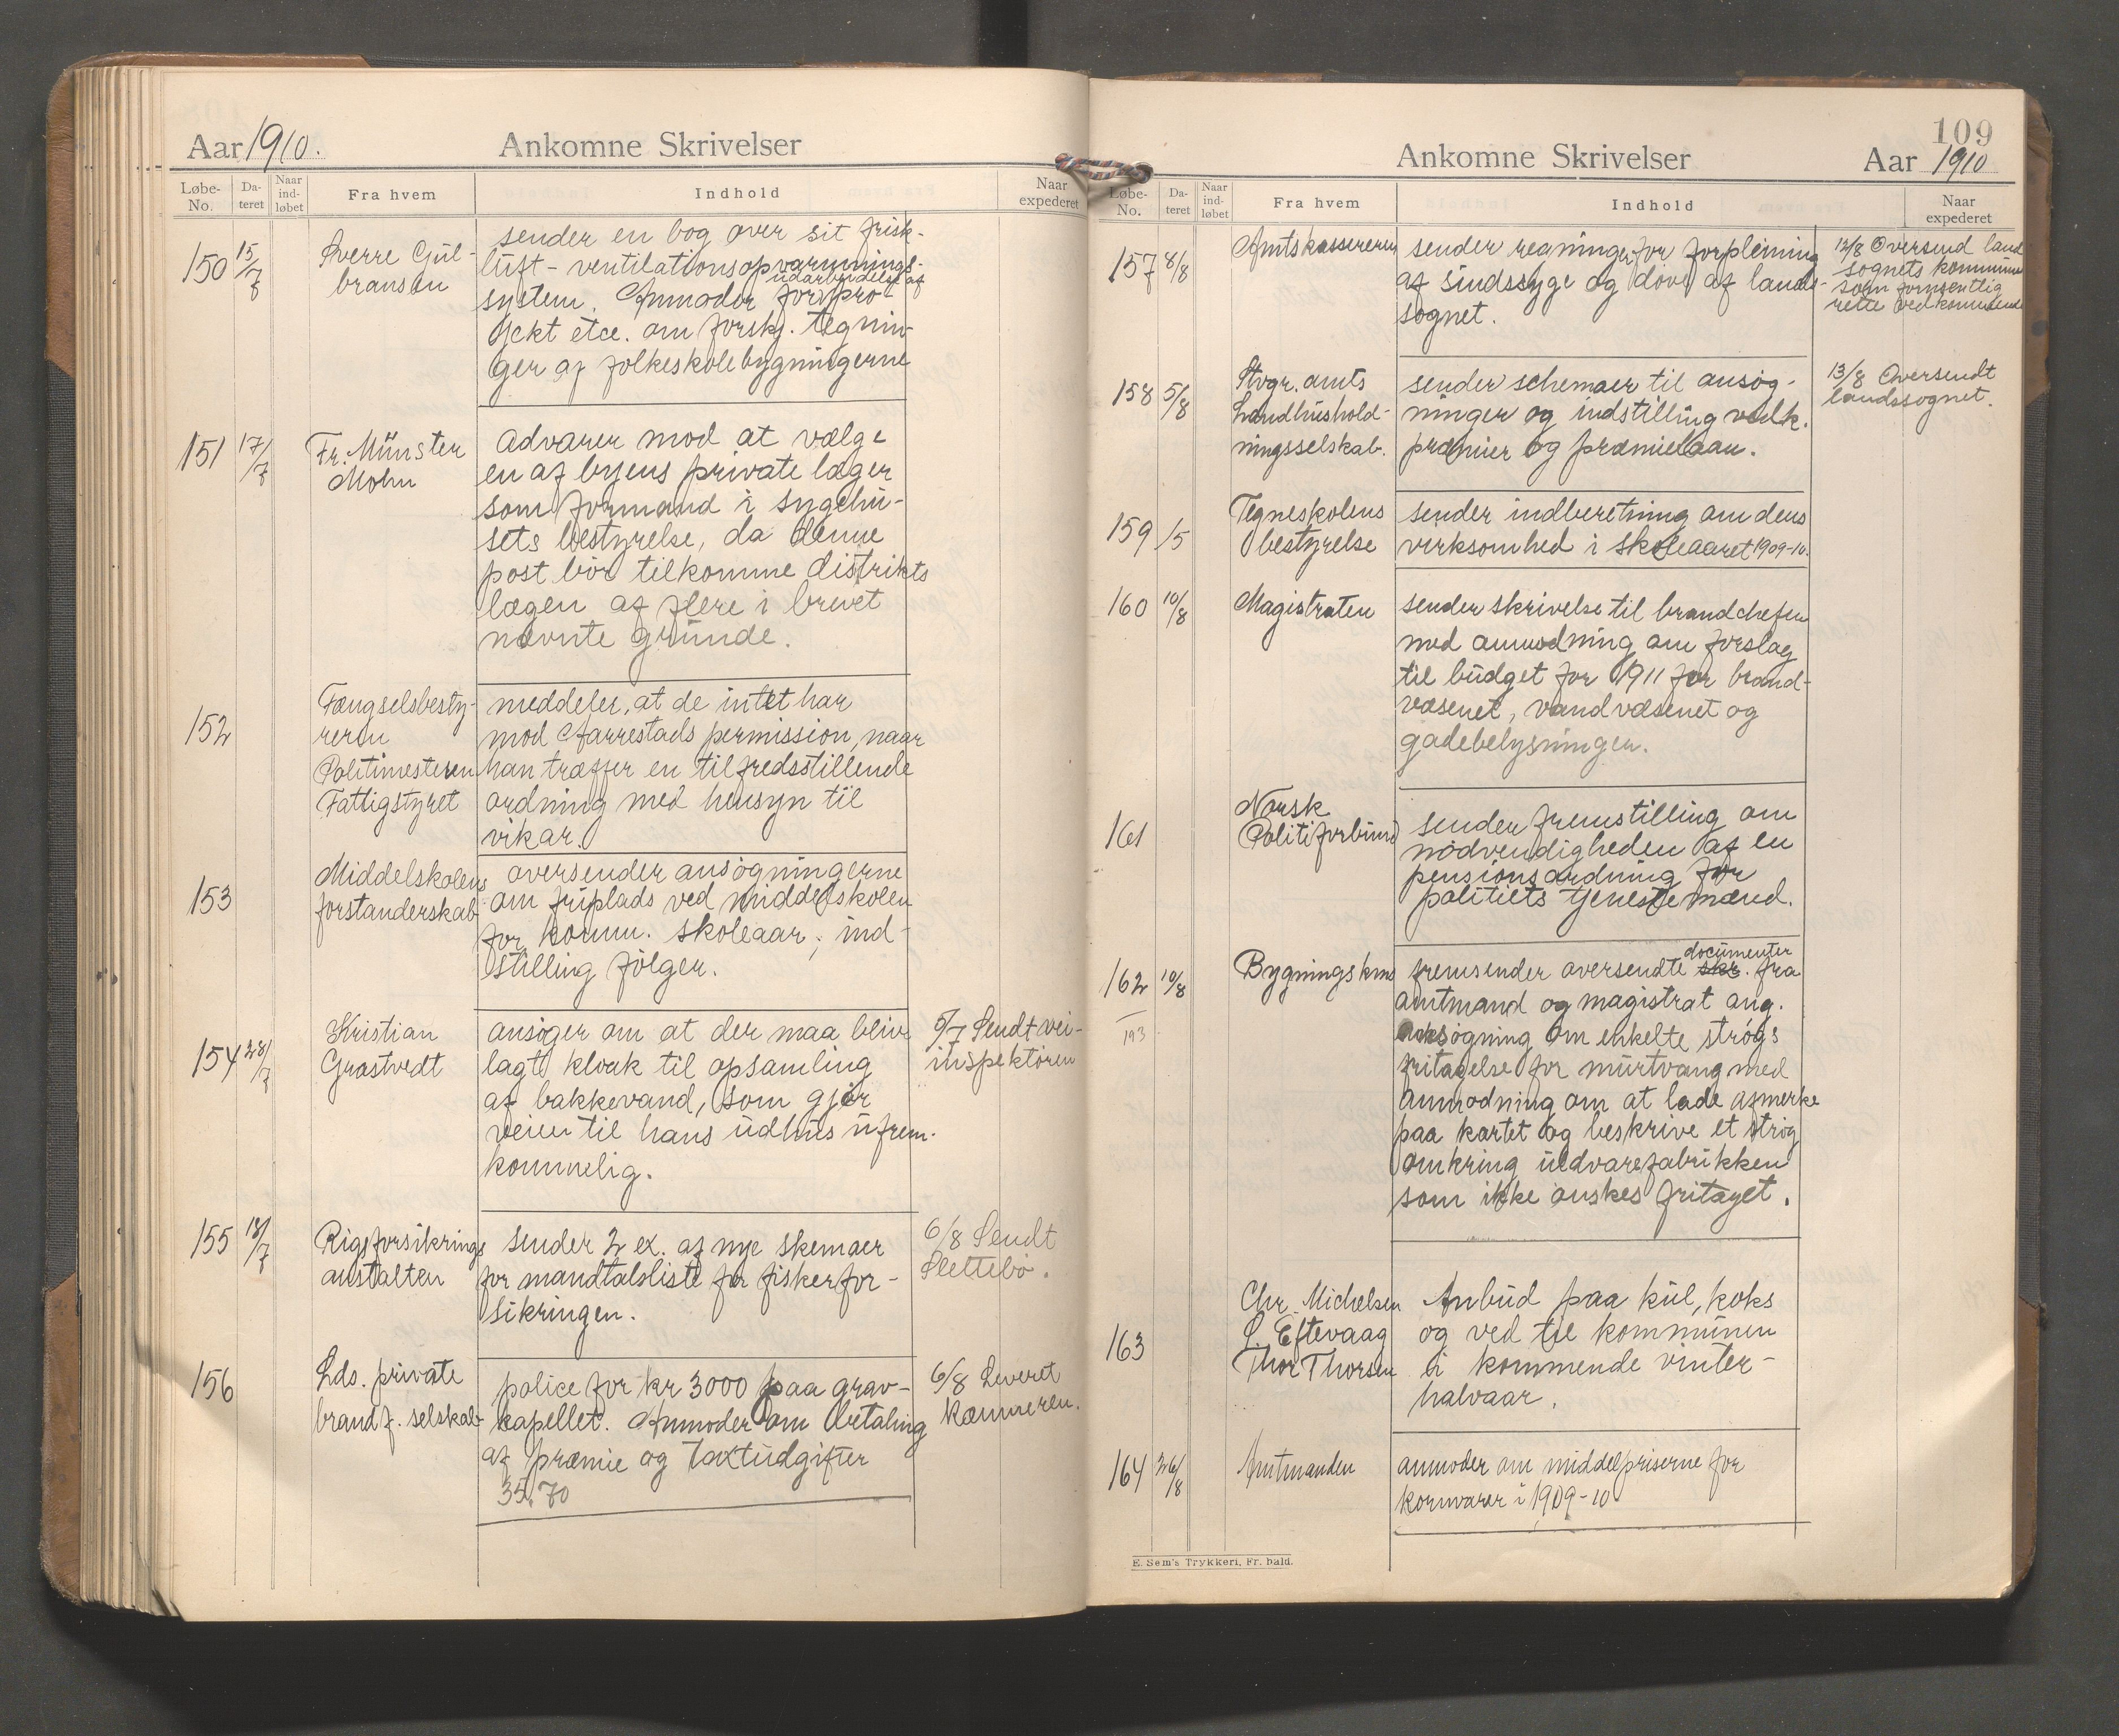 Aar 1910.
Ankomne Skrivelser
Løbe-No.
Da-teret
Naar ind-løbet
Fra hvem
Indhold
Naar expederet
150 15/7
Sverre Gul-
bransen
sender en bog over sit frisk-
luft-ventilationsopvarmnings-
udarbeidelse af
system. Anmoder for pro-
jekt etce. om forskj. tegnin-
ger af folkeskolebygningerne
151 17/7
Fr. Münster
Mohn
advarer mod at vælge
en af byens private læger
som formand i sygehu-
sets bestyrelse, da denne
post bör tilkomme distrikts
lægen af flere i brevet
nævnte grunde.
152
Fængselsbesty-
reren
Politimesteren
Fattigstyret
meddeler, at de intet har
mod Aarrestads permission, naar
han træffer en tilfredsstillende
ordning med hensyn til
vikar.
153
Middelskolens
forstanderskab
oversender ansøgningerne
om friplads ved middelskolen
for komm. skoleaar; ind-
stilling følger.
154 28/7
Kristian
Græstvedt
ansøger om at der maa bliv
lagt kloak til opsamling
af bakkevand, som gjør
veien til hans udhus ufrem-
kommelig.
5/7 Sendt vei-
inspektøren
155 18/7
Rigsforsikrings
anstalten
sender 2 ex. af nye skemaer
for mandtalsliste for fiskerfor-
sikringen.
6/8 Sendt
Slettebø.
156
Lds. private
brandf. selskab
police for kr 3000 paa grav-
kapellet. Anmoder om betaling
af præmie og taxtudgifter
35,70
6/8 Leveret
Kæmneren.
109
Ankomne Skrivelser
Aar 1910
Løbe-No.
Da-teret
Naar ind-løbet
Fra hvem
Indhold
Naar expederet
157 8/8
Amtskassereren
sender regninger for forpleining
af sindssyge og döve af lands-
sognet.
13/8 Oversend land
sognets kommune
som formentlig
rette vedkommende
158 5/8
Stvgr. amts
Landhushold-
ningsselskab.
sender schemaer til ansög-
ninger og indstilling vedk.
præmier og præmielaan.
13/8 Oversendt
landssognet.
159 /5
Tegneskolens
bestyrelse
sender indberetning om dens
virksomhed i skoleaaret 1909-10.
160 10/8
Magistraten
sender skrivelse til brandchefen
med anmodning om forslag
til budget for 1911 for brand-
væsenet, vandvæsenet og
gadebelysningen.
161
Norsk
Politiforbund
sender fremstilling om
nödvendigheden af en
pensionsordning for
politiets tjenestemænd.
162 10/8
193
Bygningskms
documenter
fremsender oversendte skr. fra
amtmand og magistrat ang.
ansøgning om enkelte strøgs
fritagelse for murtvang med
anmodning om at lade afmerke
paa kartet og beskrive et strøg
omkring uldvarefabrikken
som ikke ønskes fritaget.
163
Chr. Michelsen
L. Eftevaag
Thor Thorsen
Anbud paa kul, koks
og ved til kommunen
i kommende vinter-
halvaar.
164 26/8
Amtmanden
anmoder om middelpriserne for
kornvarer i 1909-10
E. Sem's Trykkeri, Fr. hald.